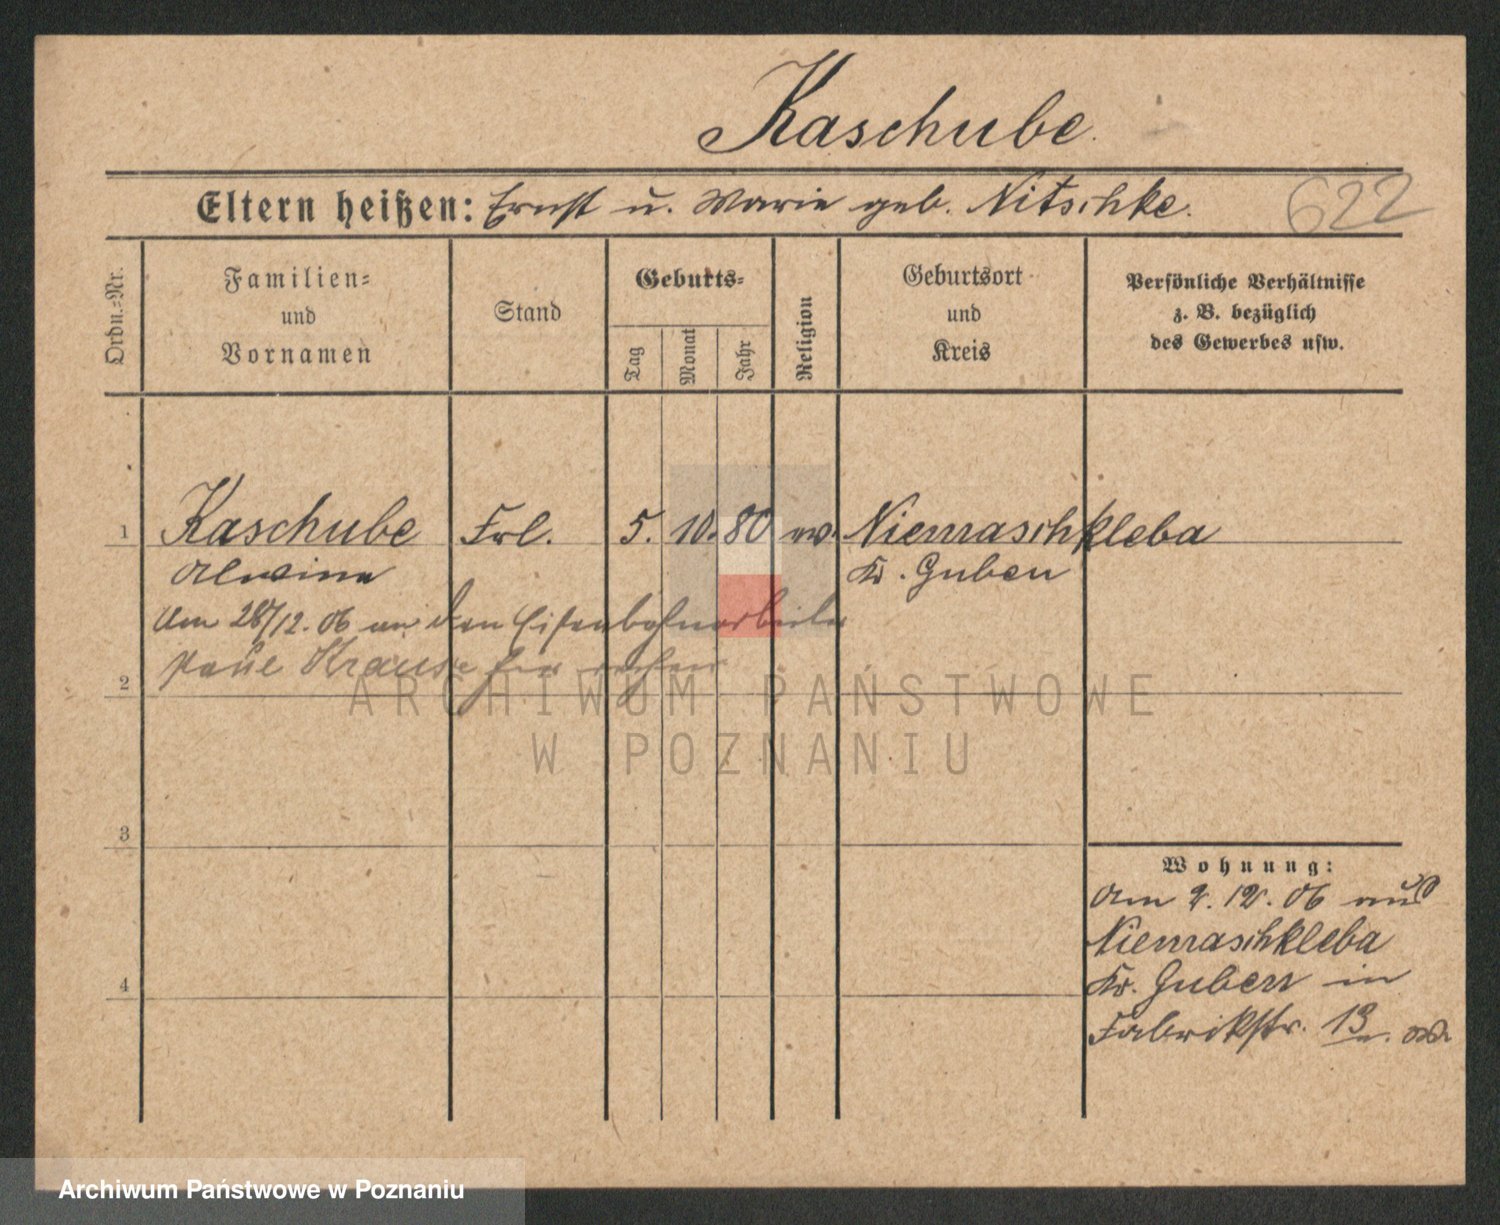 Kaschube.
Eltern heißen: Ernst u. Marie geb. Nitschke.
622
Ordn.=Nr.
Familien=
und
Vornamen
Stand
Geburts=
Tag
Monat
Jahr
Religion
Geburtsort
und
Kreis
Persönliche Verhältnisse
z. B. bezüglich
des Gewerbes usw.
1 Kaschube Frl. 5. 10. 80 ev. Niemaschkleba
Alwine Kr. Guben
Am 28/12. 06 an den Eisenbahnarbeiter
2 Paul Krause hier
ARCHIWUM PAŃSTWOWE
W POZNANIU
3
Wohnung:
Am 2. 12. 06 aus
Niemaschkleba
4
Kr. Guben in
Fabrikstr. 13
Archiwum Państwowe w Poznaniu